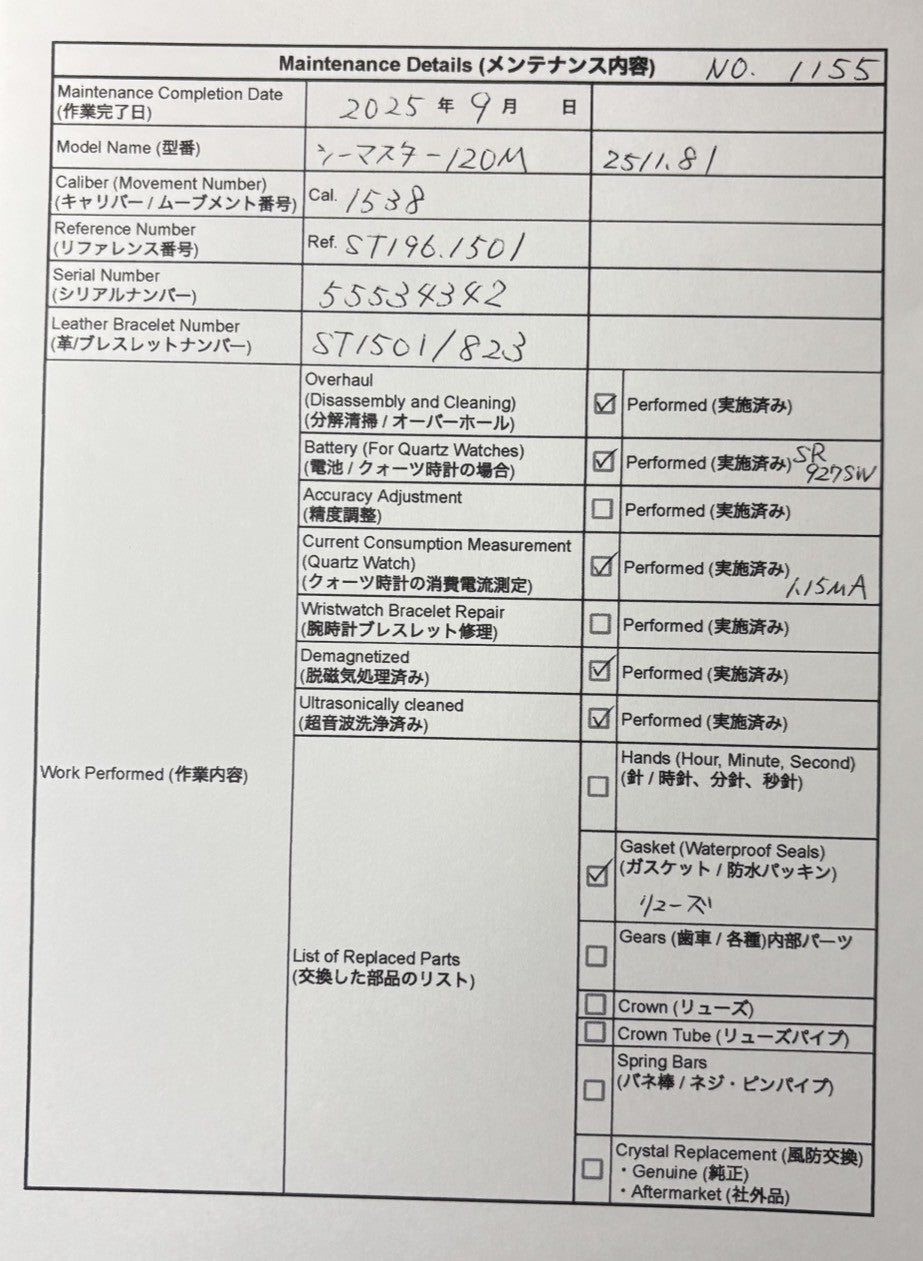 Maintenance Details (メンテナンス内容) NO. 1155
Maintenance Completion Date
(作業完了日)
2025 年 9 月 日
Model Name (型番)
シーマスター120M 2511.81
Caliber (Movement Number)
(キャリバー / ムーブメント番号)
Cal. 1538
Reference Number
(リファレンス番号)
Ref. ST196.1501
Serial Number
(シリアルナンバー)
55534342
Leather Bracelet Number
(革/ブレスレットナンバー)
ST1501/823
Work Performed (作業内容)
Overhaul
(Disassembly and Cleaning)
(分解清掃 / オーバーホール)
☑ Performed (実施済み)
Battery (For Quartz Watches)
(電池 / クォーツ時計の場合)
☑ Performed (実施済み) SR
927SW
Accuracy Adjustment
(精度調整)
☐ Performed (実施済み)
Current Consumption Measurement
(Quartz Watch)
(クォーツ時計の消費電流測定)
☑ Performed (実施済み)
1.15μA
Wristwatch Bracelet Repair
(腕時計ブレスレット修理)
☐ Performed (実施済み)
Demagnetized
(脱磁気処理済み)
☑ Performed (実施済み)
Ultrasonically cleaned
(超音波洗浄済み)
☑ Performed (実施済み)
List of Replaced Parts
(交換した部品のリスト)
☐ Hands (Hour, Minute, Second)
(針 / 時針、分針、秒針)
☑ Gasket (Waterproof Seals)
(ガスケット / 防水パッキン)
リューズ
☐ Gears (歯車 / 各種)内部パーツ
☐ Crown (リューズ)
☐ Crown Tube (リューズパイプ)
☐ Spring Bars
(バネ棒 / ネジ・ピンパイプ)
☐ Crystal Replacement (風防交換)
・Genuine (純正)
・Aftermarket (社外品)